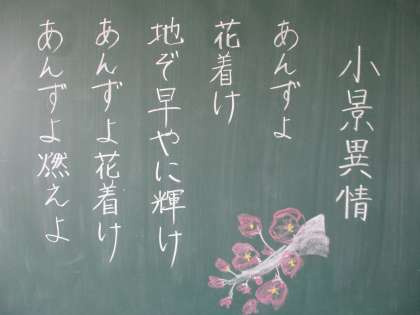 小景異情
あんずよ
花着け
地ぞ早やに輝け
あんずよ花着け
あんずよ燃えよ